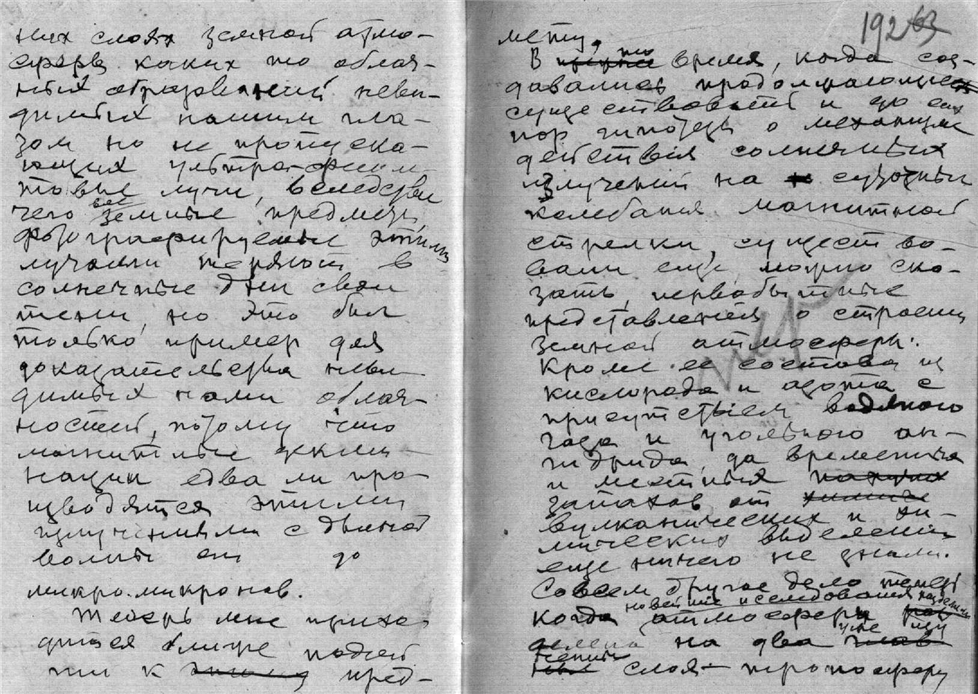 них слоях земной атмо-
сферы каких то облач-
ных образований неви-
димых нашим гла-
зом но не пропуска-
ющих ультра-фиол-
товые лучи, вследствии
чего все земные предметы,
фотографируемые этими
лучами теряют в
солнечные дни свои
тени, но это был
только пример для
доказательства неви
димых нами облач-
ностей, потому что
магнитные
едва ли про-
изводятся этими
излучениями с длиной
волны от до
микро-микронов.
Теперь мне прихо
дится ближе подой
ти к пред-
192
мету.
В то время, когда соз-
давались продолжающие
существовать и до сих
пор гипотезы о механизме
действия солнечных
излучений на суточные
колебания магнитной
стрелки, существо-
вали еще, можно ска-
зать, первобытные
представления о строении
земной атмосферы.
Кроме ее состава из
кислорода и азота с
присутствием водяного
газа и угольного ан-
гидрида, да временных
и местных
запахов от
вулканических и хи-
мических выделений
еще ничего не знали.
Совсем другое дело теперь
когда новейшие исследования
атмосферы
на два уже
слоя тропосферу